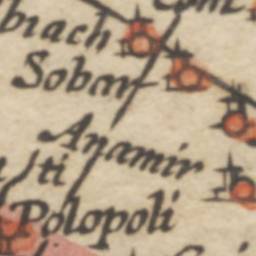 biach
Sobar
Anamir
ti
Polopoli